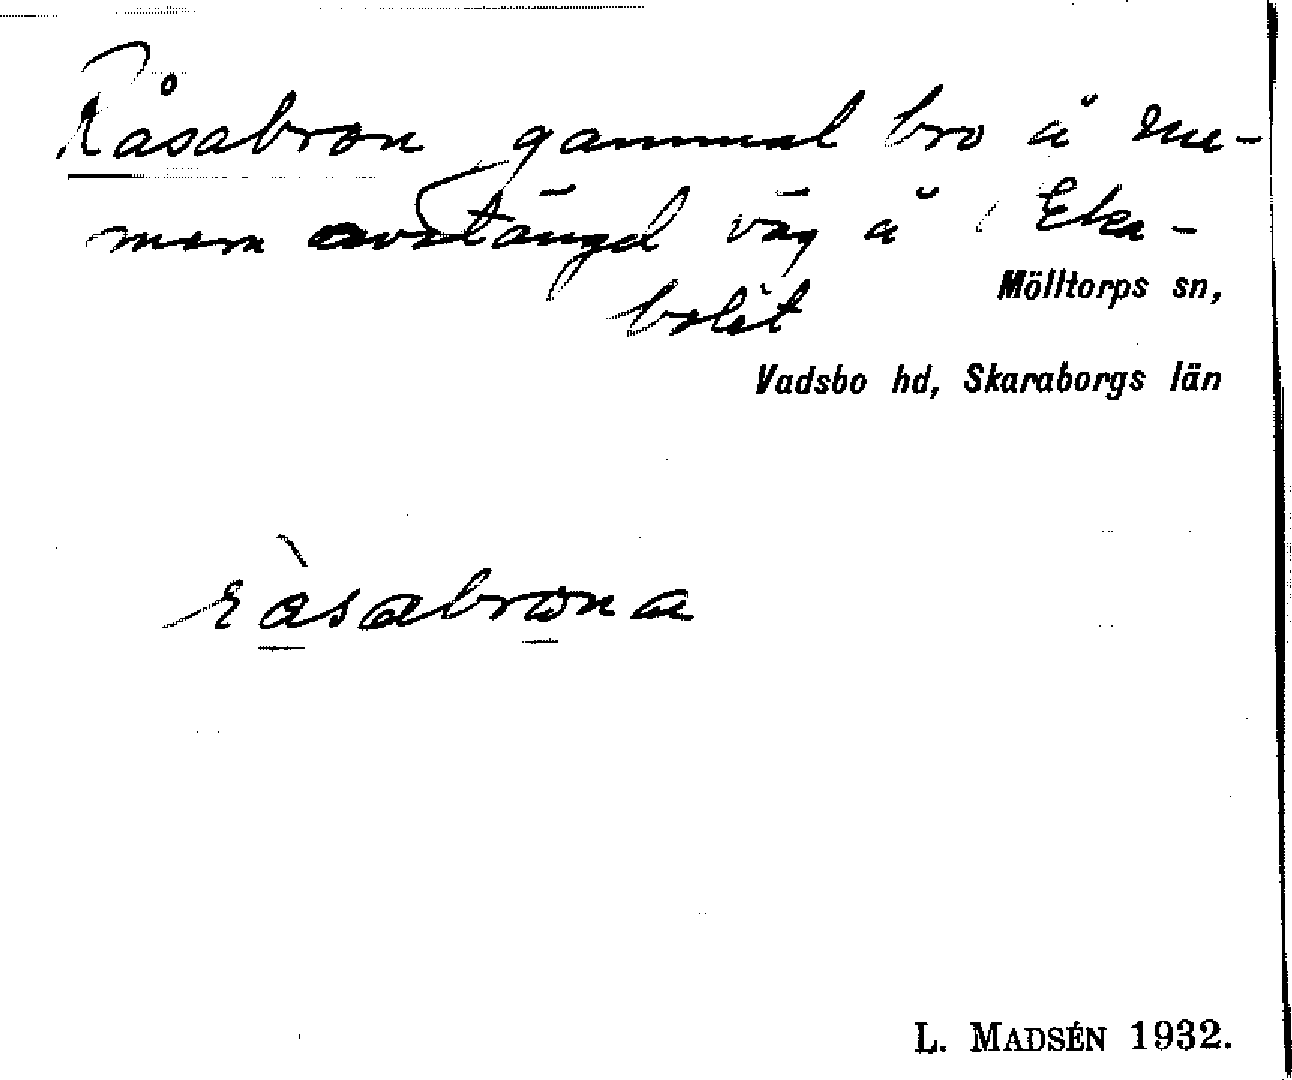 Råsabron gammal bro å nu-
mera avstängd väg å Eka-
bolet
Mölltorps sn,
Vadsbo hd, Skaraborgs län
ràsabrona
L. MADSÉN 1932.